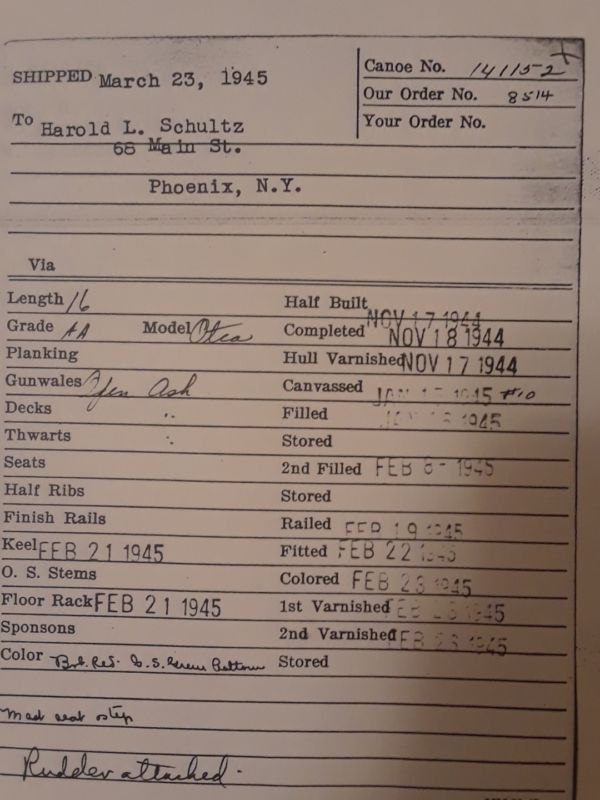 SHIPPED March 23, 1945
Canoe No. 141152
Our Order No. 8514
Your Order No.
To Harold L. Schultz
68 Main St.
Phoenix, N.Y.
Via
Length 16
Half Built NOV 17 1944
Grade AA Model Otca
Completed NOV 18 1944
Planking
Hull Varnished NOV 17 1944
Gunwales Open Ash
Canvassed JAN 15 1945 #10
Decks "
Filled 1945
Thwarts "
Stored
Seats
2nd Filled FEB 6 - 1945
Half Ribs
Stored
Finish Rails
Railed FEB 19 1945
Keel FEB 21 1945
Fitted FEB 22 1945
O. S. Stems
Colored FEB 23 1945
Floor Rack FEB 21 1945
1st Varnished FEB 1945
Sponsons
2nd Varnished FEB 1945
Color Red Green Bottom
Stored
Mast seat & step
Rudder attached.